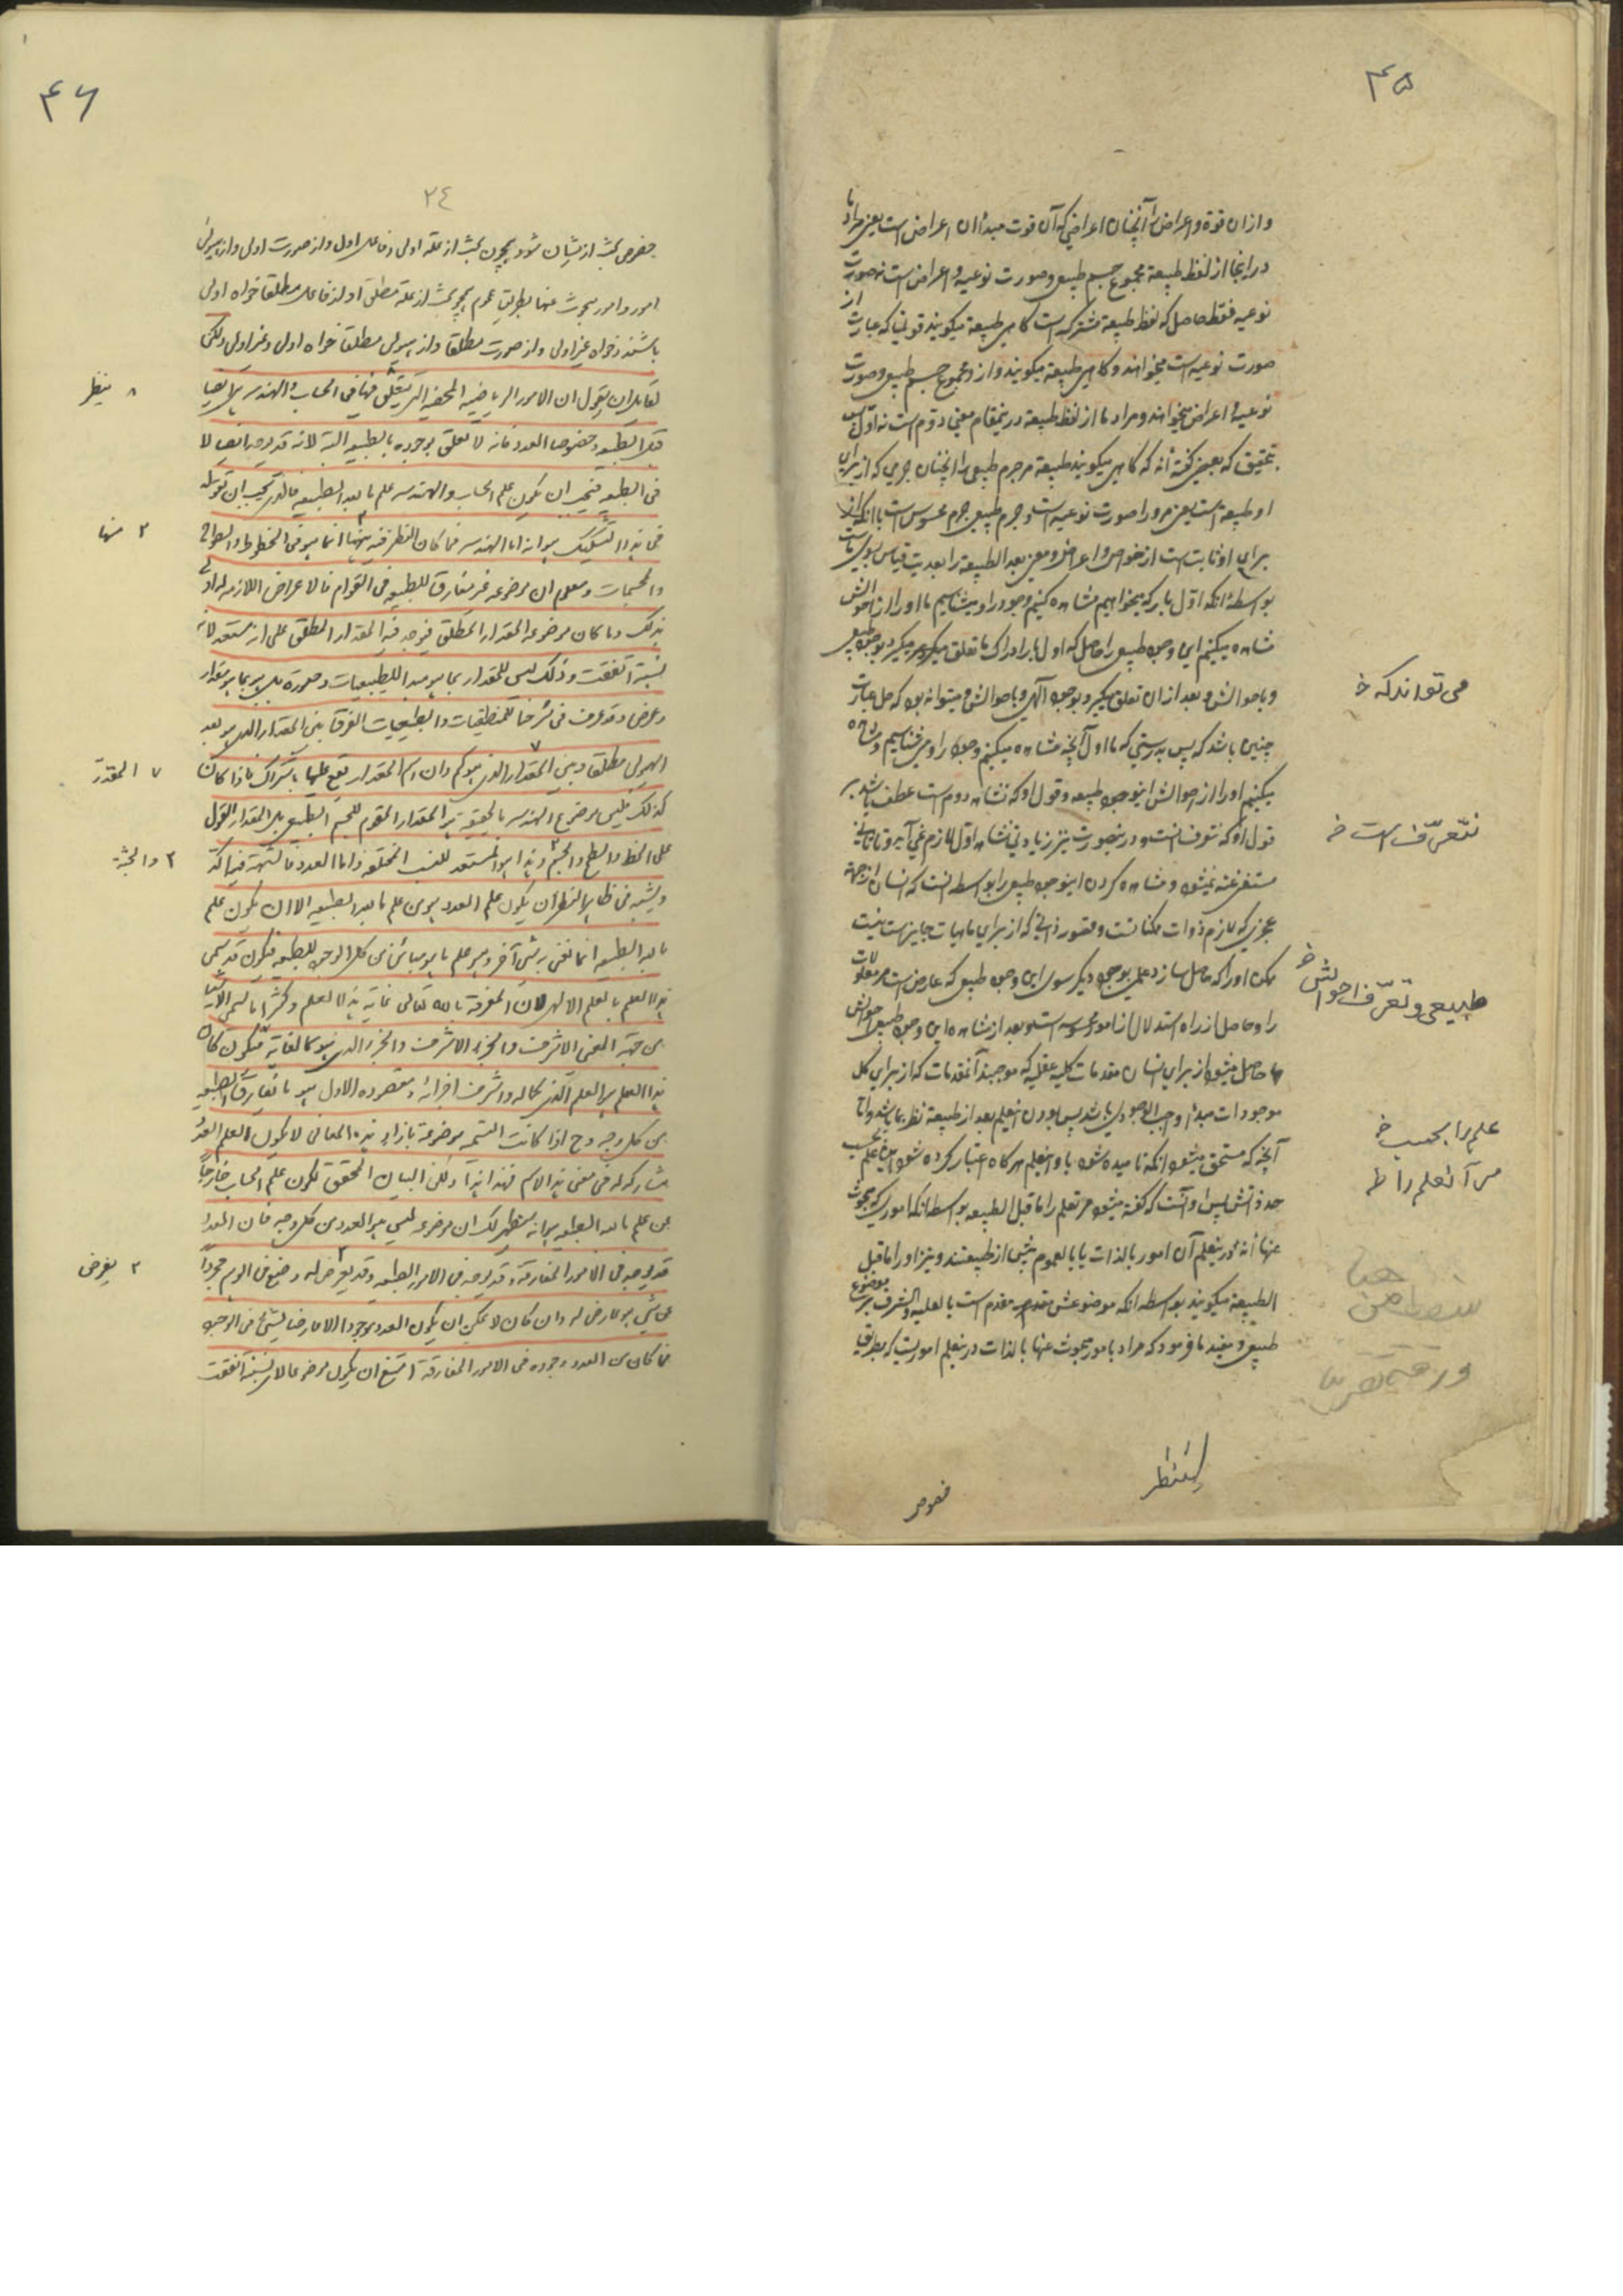 ۴۵
و ازان قوة و اعراض را آنچنان اعراضی که آن قوت مبدأ ان اعراض است یعنی مراد ما
در اینجا از لفظ طبیعة مجموع جسم طبیعی و صورت نوعیه و اعراض است نه صورت
نوعیه فقط حاصل که لفظ طبیعة مشترکه است کاهی طبیعة میکویند قوتیرا که عبارت از
صورت نوعیه است میخواهند و کاهی طبیعة میکویند و از او مجموع جسم طبیعی و صورت
نوعیة و اعراض میخواهند و مراد ما از لفظ طبیعة درینمقام معنی دوم است نه اول پس
بتحقیق که بعضی کفته اند که کاهی میکویند طبیعة مر جرم طبیعی را آنچنان جرمی که از برای
او طبیعة است یعنی مر او را صورت نوعیه است و جرم طبیعی جرم محسوس است با آنکه از
برای او ثابت است از خواص و اعراض و معنی بعد الطبیعة را بعدیت بقیاس بسوی ماست
بواسطه انکه اول بار که میخواهیم مشاهده کنیم وجود را و بشناسیم ما او را از احوالش
مشاهده میکنیم این وجود طبیعی را حاصل که اول بار ادراک ما تعلق میکیرد بوجود طبیعی
و باحوالش و بعد از ان تعلق میکیرد بوجود آلهی و باحوالش و میتواند بود که حل عبارت
چنین باشد که پس بدرستی که ما اول آنچه مشاهده میکنیم وجود را و می شناسیم و مشاهده
میکنیم او را از احوالش اینوجود طبیعه و قول او که نشاهد دوم است عطف باشد بر
قول او که نتعرف است و درینصورت نیز زیادتی نشاهد اول لازم نمی آید
مستغنی عنه نمیشود و مشاهده کردن اینوجود طبیعی را بواسطه انست که انسان از جهة
عجزی که لازم ذوات ممکناتست و قصور ذاتی که از برای ماهیات جایزست نیست
ممکن او را که حاصل سازد علمی بوجود دیکر سوی این وجود طبیعی که عارض است مر معلولات
را و حاصل از راه استدلال از امور محسوسه است و بعد از مشاهده این وجود طبیعی و احوالش
حاصل میشود از برای انسان مقدمات کلیه عقلیه که موجبند آنمقدمات که از برای کل
موجودات مبدأ واجب الوجودی باشد پس بودن اینعلم بعد از طبیعة نظر بما باشد و اما
آنچه که مستحق میشود انکه نامیده شود باو اینعلم هرکاه اعتبار کرده شود این علم بحسب
حد ذاتش پس او آنست که کفته میشود مر اینعلم را ما قبل الطبیعه بواسطه انکه اموری که مبحوث
عنها اند در ینعلم آن امور بالذات یا بالعموم پیش از طبیعتند و نیز او را ما قبل
الطبیعة میکویند بواسطه انکه موضوعش مقدم است بالعلیه و الشرف بر موضوع
طبیعی و مفید ما فرمود که مراد بامور مبحوث عنها بالذات در ینعلم امور یست که بطریق
می تواند که خ
نتعرّف است خ
طبیعی و تعرّف احوالش خ
علم را بحسب خ
مر آنعلم را ط
خصوص
۴۶
۲٤
خصوص بحث ازیشان شود همچون بحث از علة اولی و فاعل اول و از صورت اولی و از هیولی
امور و امور مبحوث عنها بطریق عموم همچو بحث از علة مطلق و از فاعل مطلقا خواه اولی
باشند و خواه غیر اولی و از صورت مطلقا و از هیولی مطلقا خواه اولی و غیر اولی ولکن
لقایل ان یقول ان الامور الریاضیه المحضه التی ینظر فیها فی الحساب و الهندسه هی ایضا
قبل الطبیعه و خصوصا العدد فانه لا تعلق لوجوده بالطبیعه البته لانه قد یوجد ایضا لا
فی الطبیعه فیجب ان یکون علم الحساب و الهندسه علم ما بعد الطبیعه فالذی یجب ان یقوله
فی هذا التشکیک هو انه اما الهندسه فما کان النظر فیه منها انما هو فی الخطوط و السطوح
و المجسمات و معلوم ان موضوعه غیر مفارق للطبیعه فی القوام فالاعراض اللازمه له اولی
بذلک و ما کان موضوعه المقدار المطلق فیوخذ فیه المقدار المطلق علی انه مستعد لایة
نسبة اتفقت و ذلک لیس للمقدار بما هو مبدأ للطبیعیات و صورة بل هو بما هو مقدار
و عرض و قد عرف فی شرحنا للمنطقیات و الطبیعیات الفرق بین المقدار الذی هو بعد
الهیولی مطلقا و بین المقدار الذی هو کم و ان اسم المقدار یقع علیهما باشتراک فاذا کان
کذلک فلیس موضوع الهندسه بالحقیقه هو المقدار المقوم للجسم الطبیعی بل المقدار المقول
علی الخط و السطح و الجسم و هذا هو المستعد للنسب المختلفه و اما العدد فالشبهة فیه آکد
و یشبه فی ظاهر النظر ان یکون علم العدد هو من علم ما بعد الطبیعه الا ان یکون علم
ما بعد الطبیعه انما نعنی به شی آخر و هو علم ما هو مباین من کل الوجوه للطبیعه فیکون قد سمی
هذا العلم بالعلم الالهی لان المعرفة بالله تعالی غایة هذا العلم و کثیرا ما تسمی الاشیا
من جهة المعنی الاشرف و الجزء الاشرف و الجزء الذی هو کالغایة فیکون کان
هذا العلم هو العلم الذی کماله و اشرف اجزائه و مقصوده الاول هو ما یفارق الطبیعه
من کل وجه و ح اذا کانت التسمیه موضوعة بازاء هذه المعانی لا یکون لعلم العدد
مشارکه له فی معنی هذا الاسم فهذا هذا و لکن البیان المحقق لکون علم الحساب خارجا
من علم ما بعد الطبیعه هو انه سیظهر لک ان موضوعه لیس هو العدد من کل وجه فان العدد
قد یوجد فی الامور المفارقة و قد یوجد فی الامور الطبیعیه و قد یعرض له وضع فی الوهم مجردا
عن شی هو عارض له و ان کان لا یمکن ان یکون العدد موجودا الا عارضا لشیء فی الوجود
فما کان من العدد وجوده فی الامور المفارقة امتنع ان یکون موضوعا لای نسبة اتفقت
۸ ینظر
۲ منها
۷ المقدر
۲ یفرض